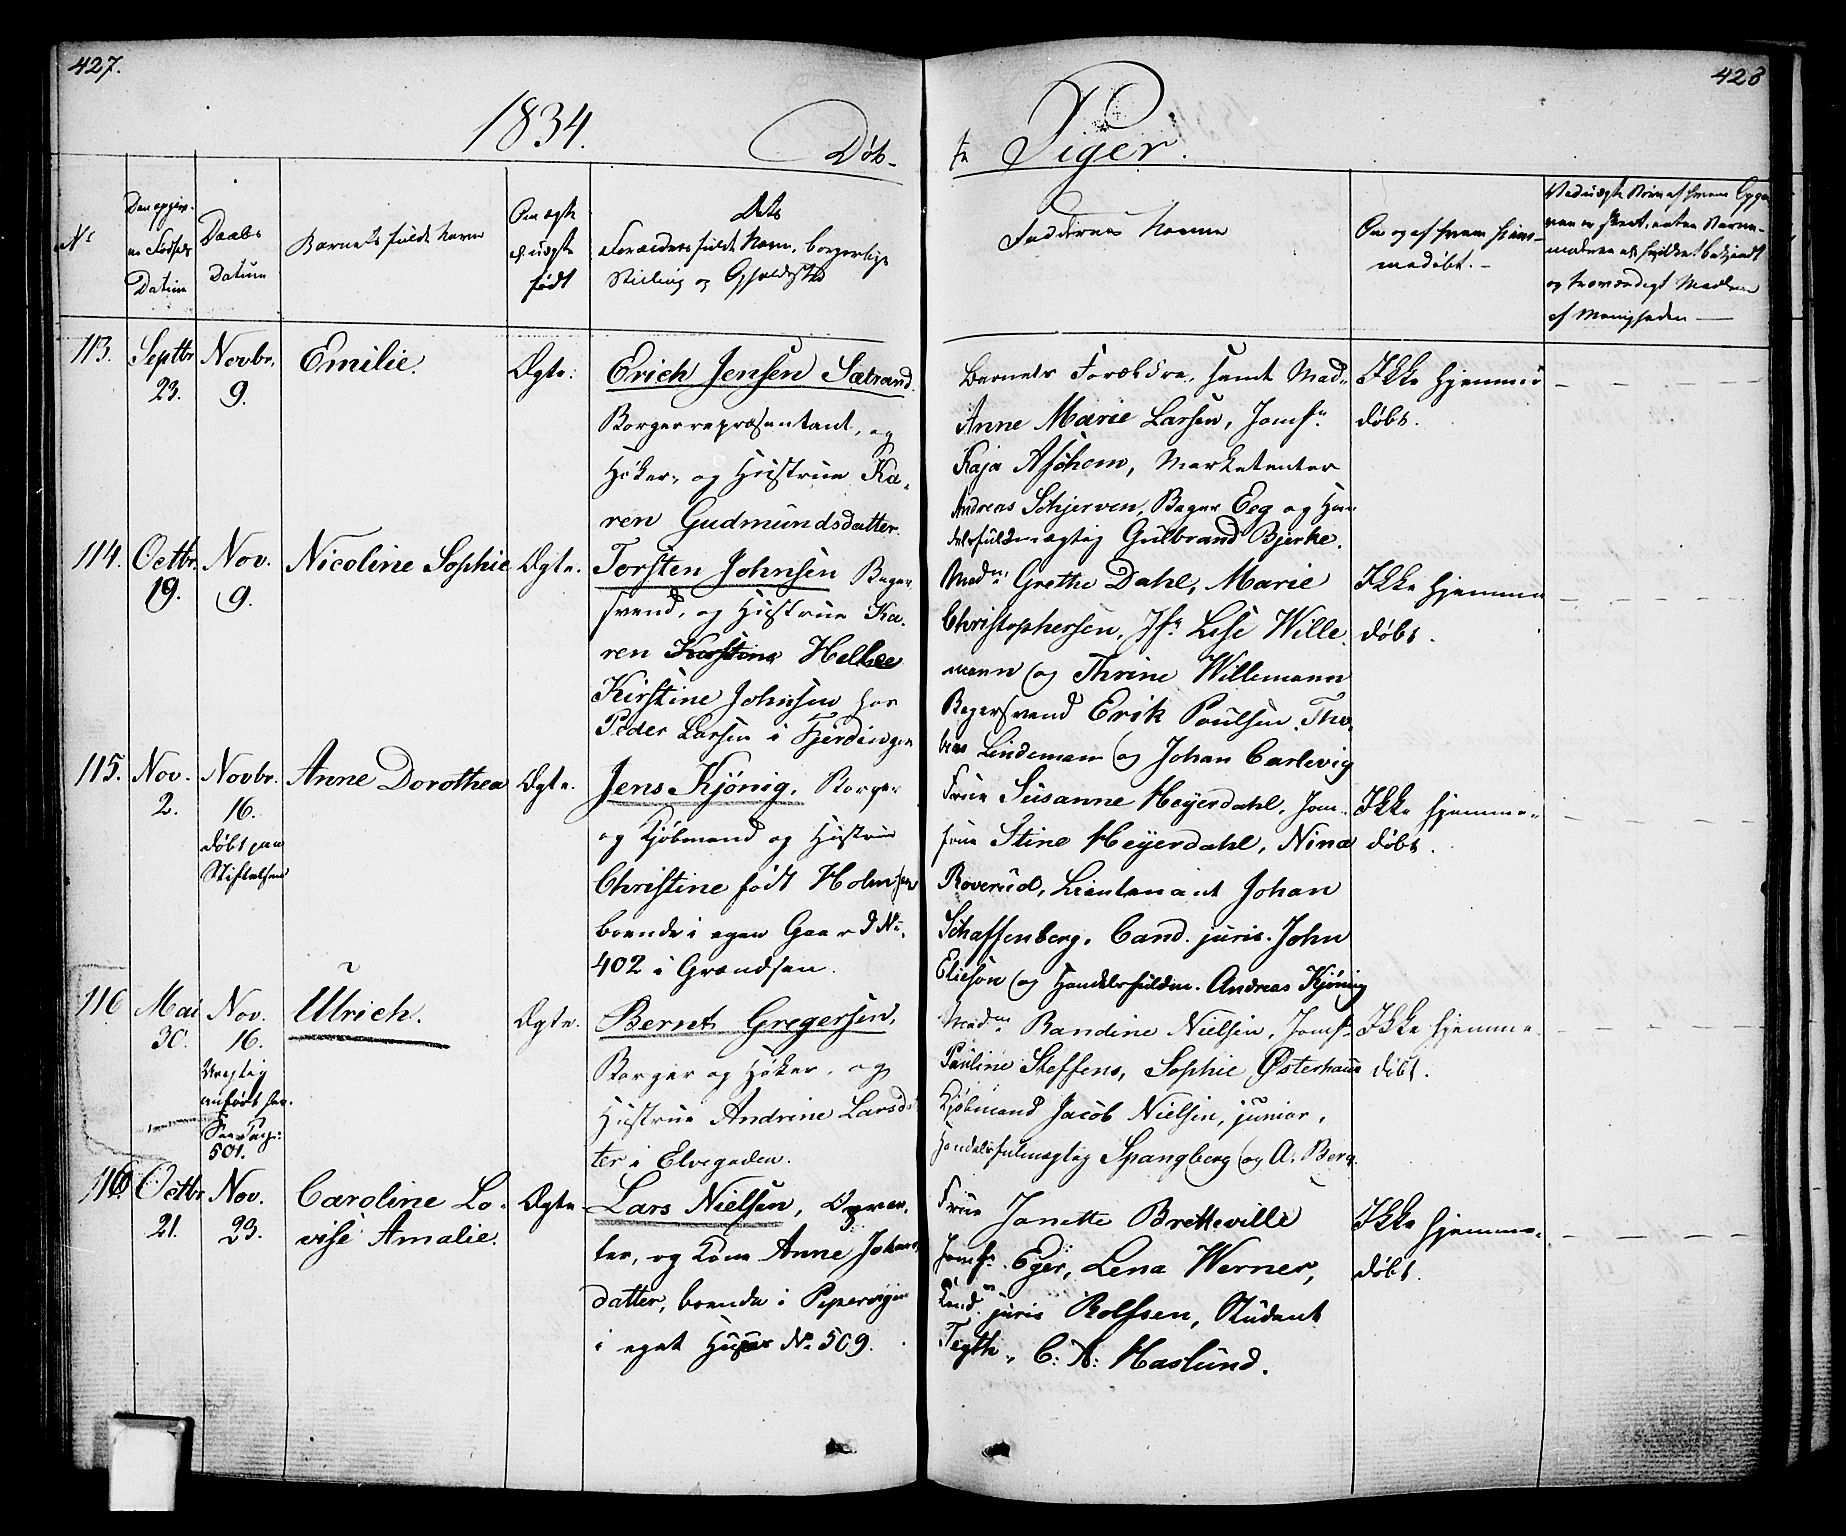 427.
428
1834.
Døb-
te Piger.
No
Den opgiv-
ne Fødsels
Datum
Daabs
Datum
Barnets fulde Navn
Om ægte
el. uægte
født
Dets
Forældres fulde Navn, borgerlige
Stilling og Opholdssted
Faddernes Navne
Om og af hvem hjem-
medøbt. -
Ved uægte Børn af hvem Opga
ven er skeet, enten Barne-
moderen eller hvilket bekjendt
og troværdigt Medlem
af Menigheden
113.
Septbr.
23.
Novbr.
9.
Emilie.
Ægte.
Erich Jensen Sætrand.
Borgerrepræsentant, og
Høker, og Hustrue Ka-
ren Gudmundsdatter.
Barnets Forældre, samt Mad.
Anne Marie Larsen, Jomfr.
Kaja Aschem, Marketenter
Andreas Schjerven, Bager Eeg og Han
delsfuldmægtig Gulbrand Bjerke.
Ikke hjemme
døbt.
114.
Octbr.
19.
Nov.
9.
Nicoline Sophie
Ægte.
Torsten Johnsen Bager
svend, og Hustrue Ka-
ren Kirstine
Kirstine Johnsen hos
Peder Larsen i Fjerdingen
Madm. Grethe Dahl, Marie
Christophersen, Jfr. Lise Wille
mann og Thrine Willemann
Bagersvend Erik Poulsen. Tho-
bias Lindemann og Johan Carlevig
Ikke hjemme
døbt.
115.
Nov.
2.
Novbr.
16.
døbt paa
Stiftelsen
Anne Dorothea
Ægte.
Jens Kjönig, Borger
og Kjøbmand og Hustrue
Christine født Holmsen
boende i egen Gaard No.
402 i Grændsen.
Frue Susanne Heyerdahl, Jom-
frue Stine Heyerdahl, Nina
Roverud, Lieutenant Johan
Schaffenberg, Cand. juris. John
Elieson og Handelsfuldm. Andreas Kjönig
Ikke hjemme-
døbt.
116
Mai
30.
Nov.
16.
Urigtig
anført her.
See Pag:
501.
Ulrich.
Ægte.
Bernt Gregersen,
Borger og Høker, og
Hustrue Andrine Larsdat
ter i Elvegaden.
Madm Randine Nielsen, Jomfr.
Pauline Steffens, Sophie Østerhaus
Kjøbmand Jacob Nielsen, junior,
Handelsfulmægtig Spangberg og A. Berg.
Ikke hjemme
døbt.
116
Octbr
21.
Nov.
23.
Caroline Lo-
vise Amalie.
Ægte
Lars Nielsen, Opvar-
ter, og Kone Anne Johans
datter, boende i Pipervigen
i eget Huus No. 509.
Frue Janette Bretteville
Jomfr. Eger, Lena Werner,
Cand. juris Rolfsen, Student
Tegth., C: A: Haslund.
Ikke hjemme-
døbt.